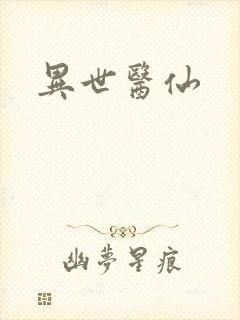 異世醫仙
幽夢星痕